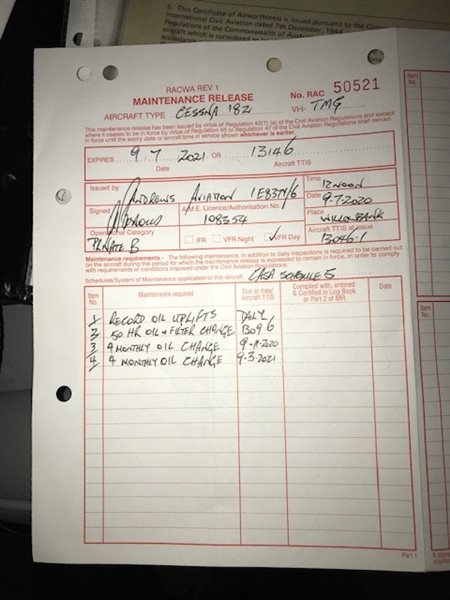 5. This Certificate of Airworthiness is issued pursuant to the
International Civil Aviation dated 7th December, 1944
Regulations of the Commonwealth of
aircraft which is considered to
accordance
RACWA REV 1
MAINTENANCE RELEASE
No. RAC 50521
AIRCRAFT TYPE CESSNA 182 VH- TMG
This maintenance release has been issued by virtue of Regulation 43(7) (a) of the Civil Aviation Regulations and except
where it ceases to be in force by virtue of Regulation 45 or Regulation 47 of the Civil Aviation Regulations shall remain
in force until the expiry date or aircraft time in service shown whichever is earlier.
EXPIRES 9.7.2021 OR 13146
Date Aircraft TTIS
Issued by ANDREWS AVIATION
Time 12 NOON
Signed A.M.E. Licence/Authorisation No. 108354
Date 9-7-2020
Place WILLOWBANK
Operational Category
PRIVATE B
IFR VFR Night ✓ VFR Day
Aircraft TTIS at issue
13046.1
Maintenance requirements - The following maintenance, in addition to daily inspections is required to be carried out
on the aircraft during the period for which the maintenance release is expressed to remain in force, in order to comply
with requirements or conditions imposed under the Civil Aviation Regulations.
Schedules/System of Maintenance application to this aircraft CASA SCHEDULE 5
Item No. Maintenance required Due at date/ Aircraft TTIS Complied with, entered & Certified in Log Book or Part 2 of MR Date
1 RECORD OIL UPLIFTS DAILY
2 50 HR OIL + FILTER CHANGE 13096
3 4 MONTHLY OIL CHANGE 9-11-2020
4 4 MONTHLY OIL CHANGE 9.3.2021
Part 1
Item
No.